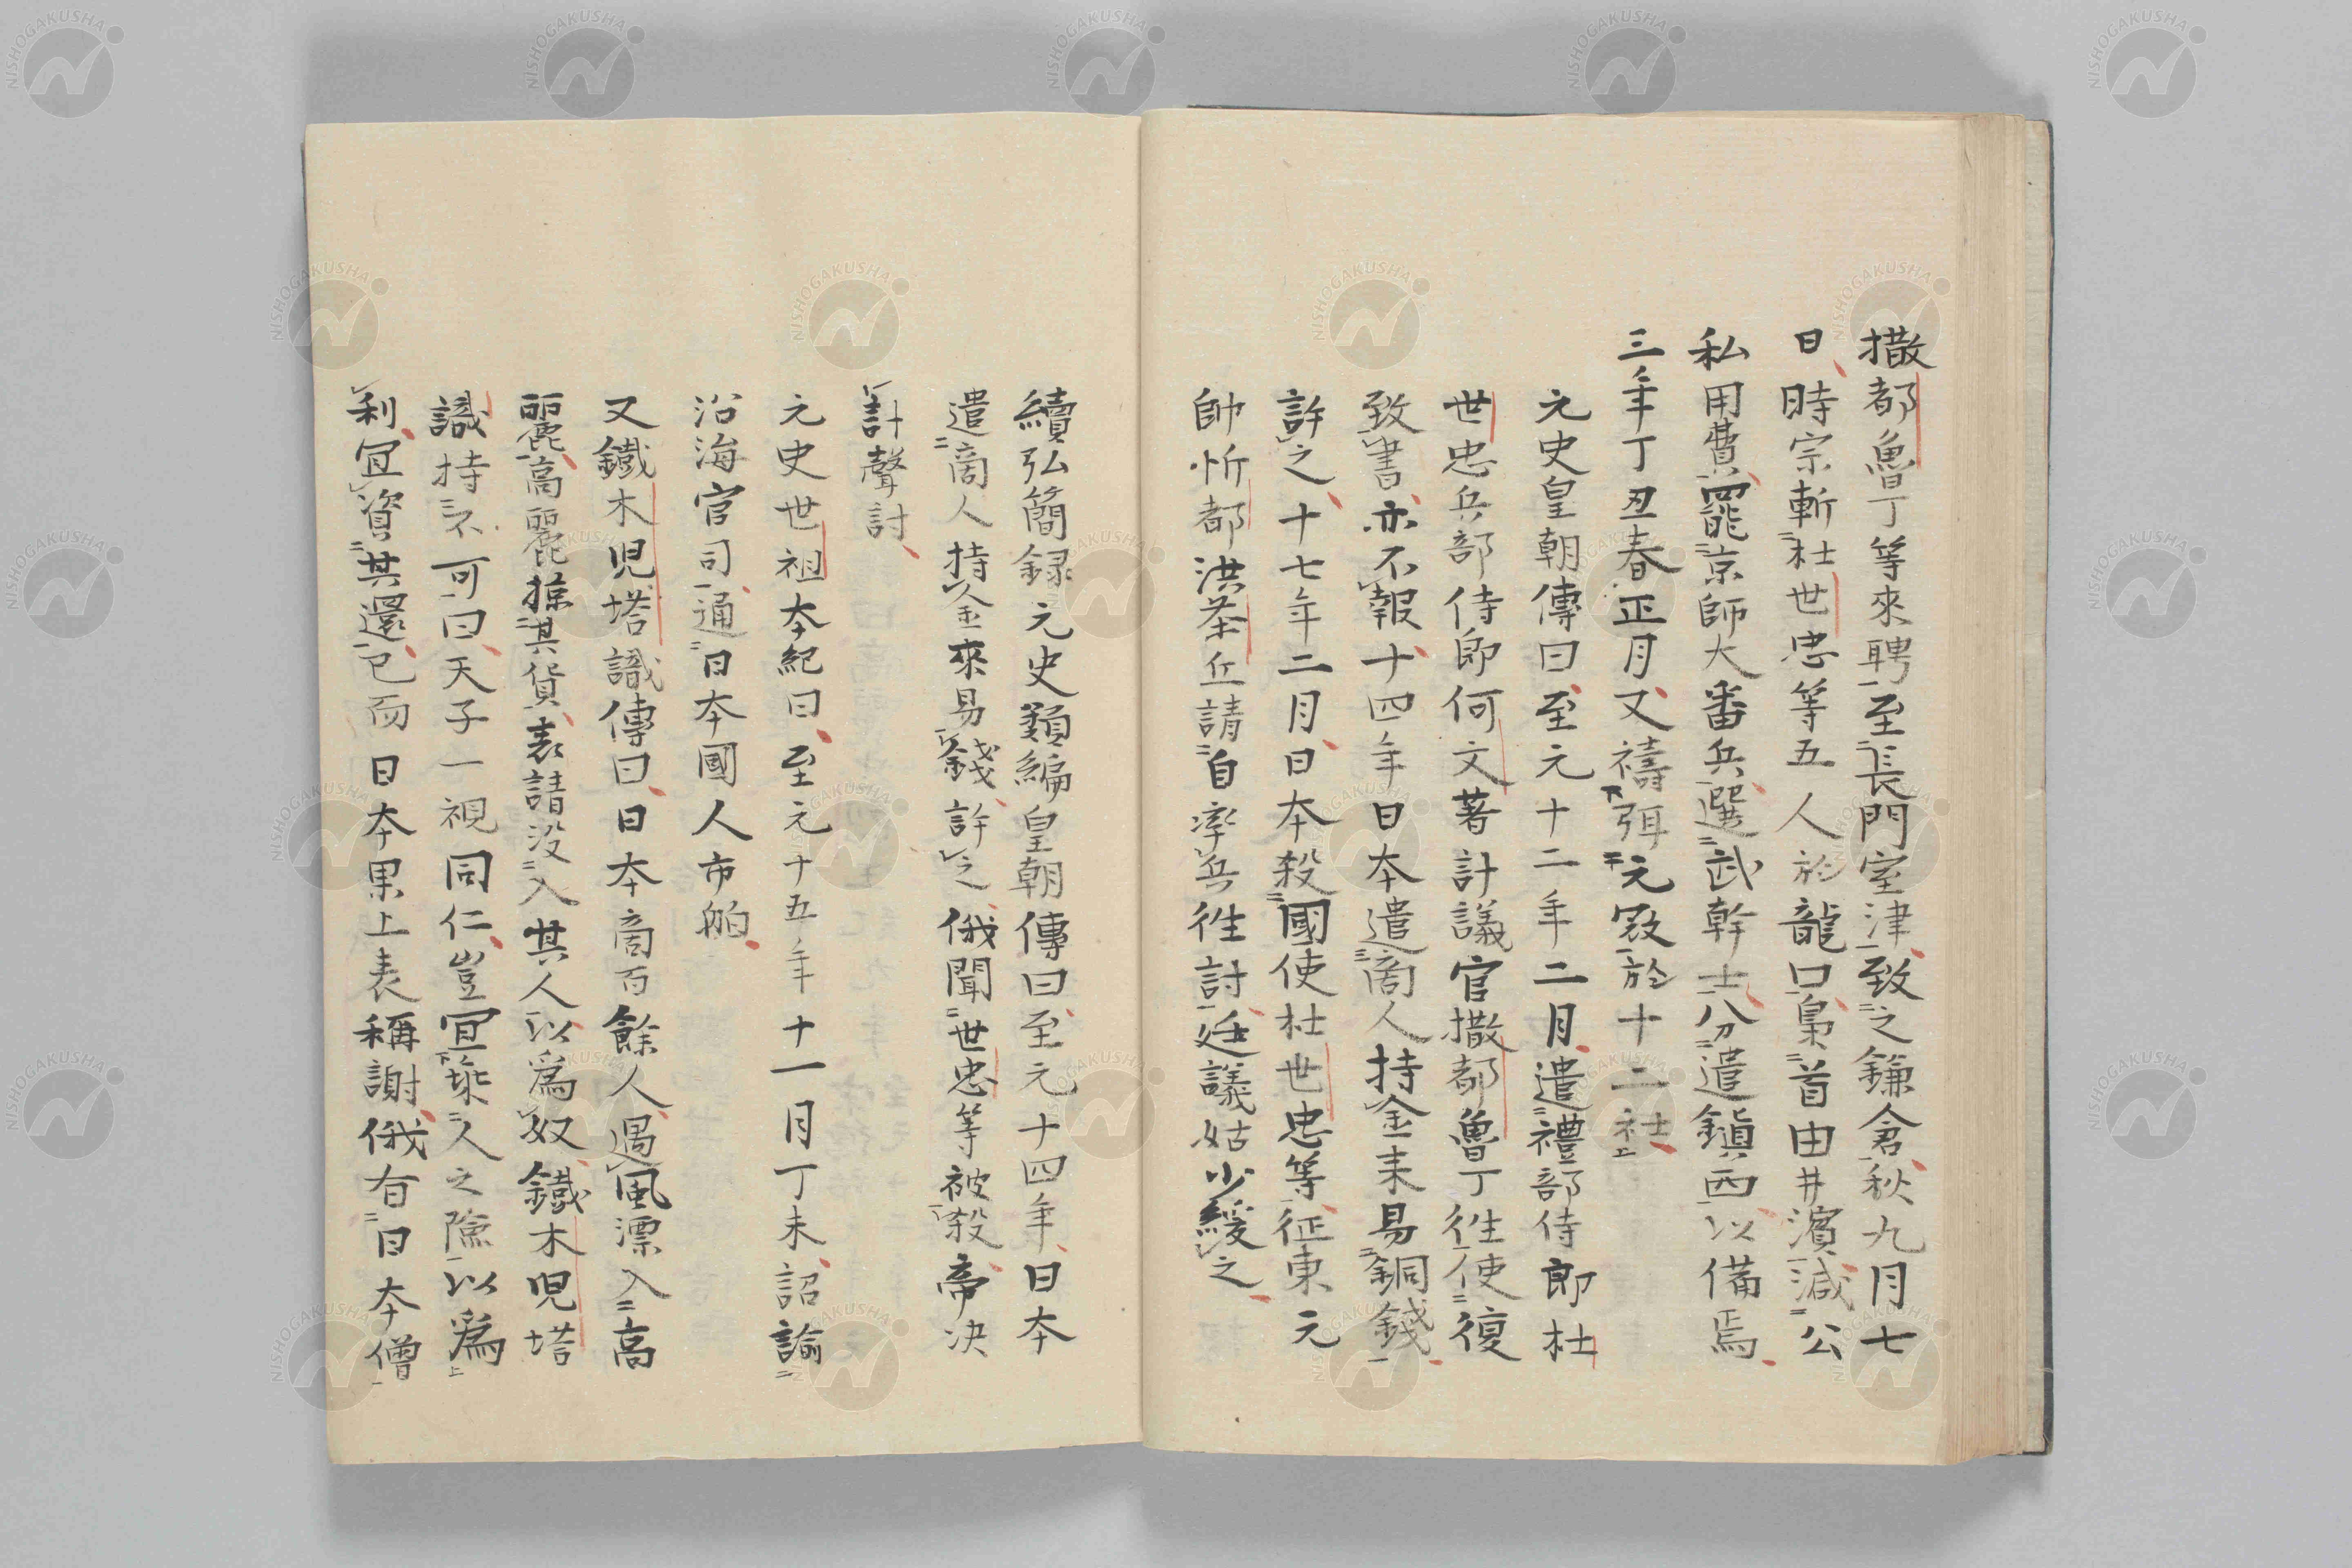 撒都魯丁等來聘至長門室津致之鎌倉秋九月七
日時宗斬杜世忠等五人於龍口梟首由井濱減公
私用費罷京師大番兵選武幹士分遣鎮西以備焉
三年丁丑春正月又禱弭元寇於十二社
元史皇朝傳曰至元十二年二月遣禮部侍郎杜
世忠兵部侍郎何文著計議官撒都魯丁徃使復
致書亦不報十四年日本遣商人持金来易銅錢
許之十七年二月日本殺國使杜世忠等征東元
帥忻都洪茶丘請自率兵徃討廷議姑少緩之
續弘簡録元史類編皇朝傳曰至元十四年日本
遣商人持金來易錢許之俄聞世忠等被殺帝决
計聲討
元史世祖本紀曰至元十五年十一月丁未詔諭
沿海官司通日本國人市舶
又鐵木児塔識傳曰日本商百餘人遇風漂入高
麗高麗掠其貨表請没入其人以爲奴鐵木児塔
識持不可曰天子一視同仁豈宜乗人之險以爲
利宜資其還已而日本果上表稱謝俄有日本僧
NISHOGAKUSHA